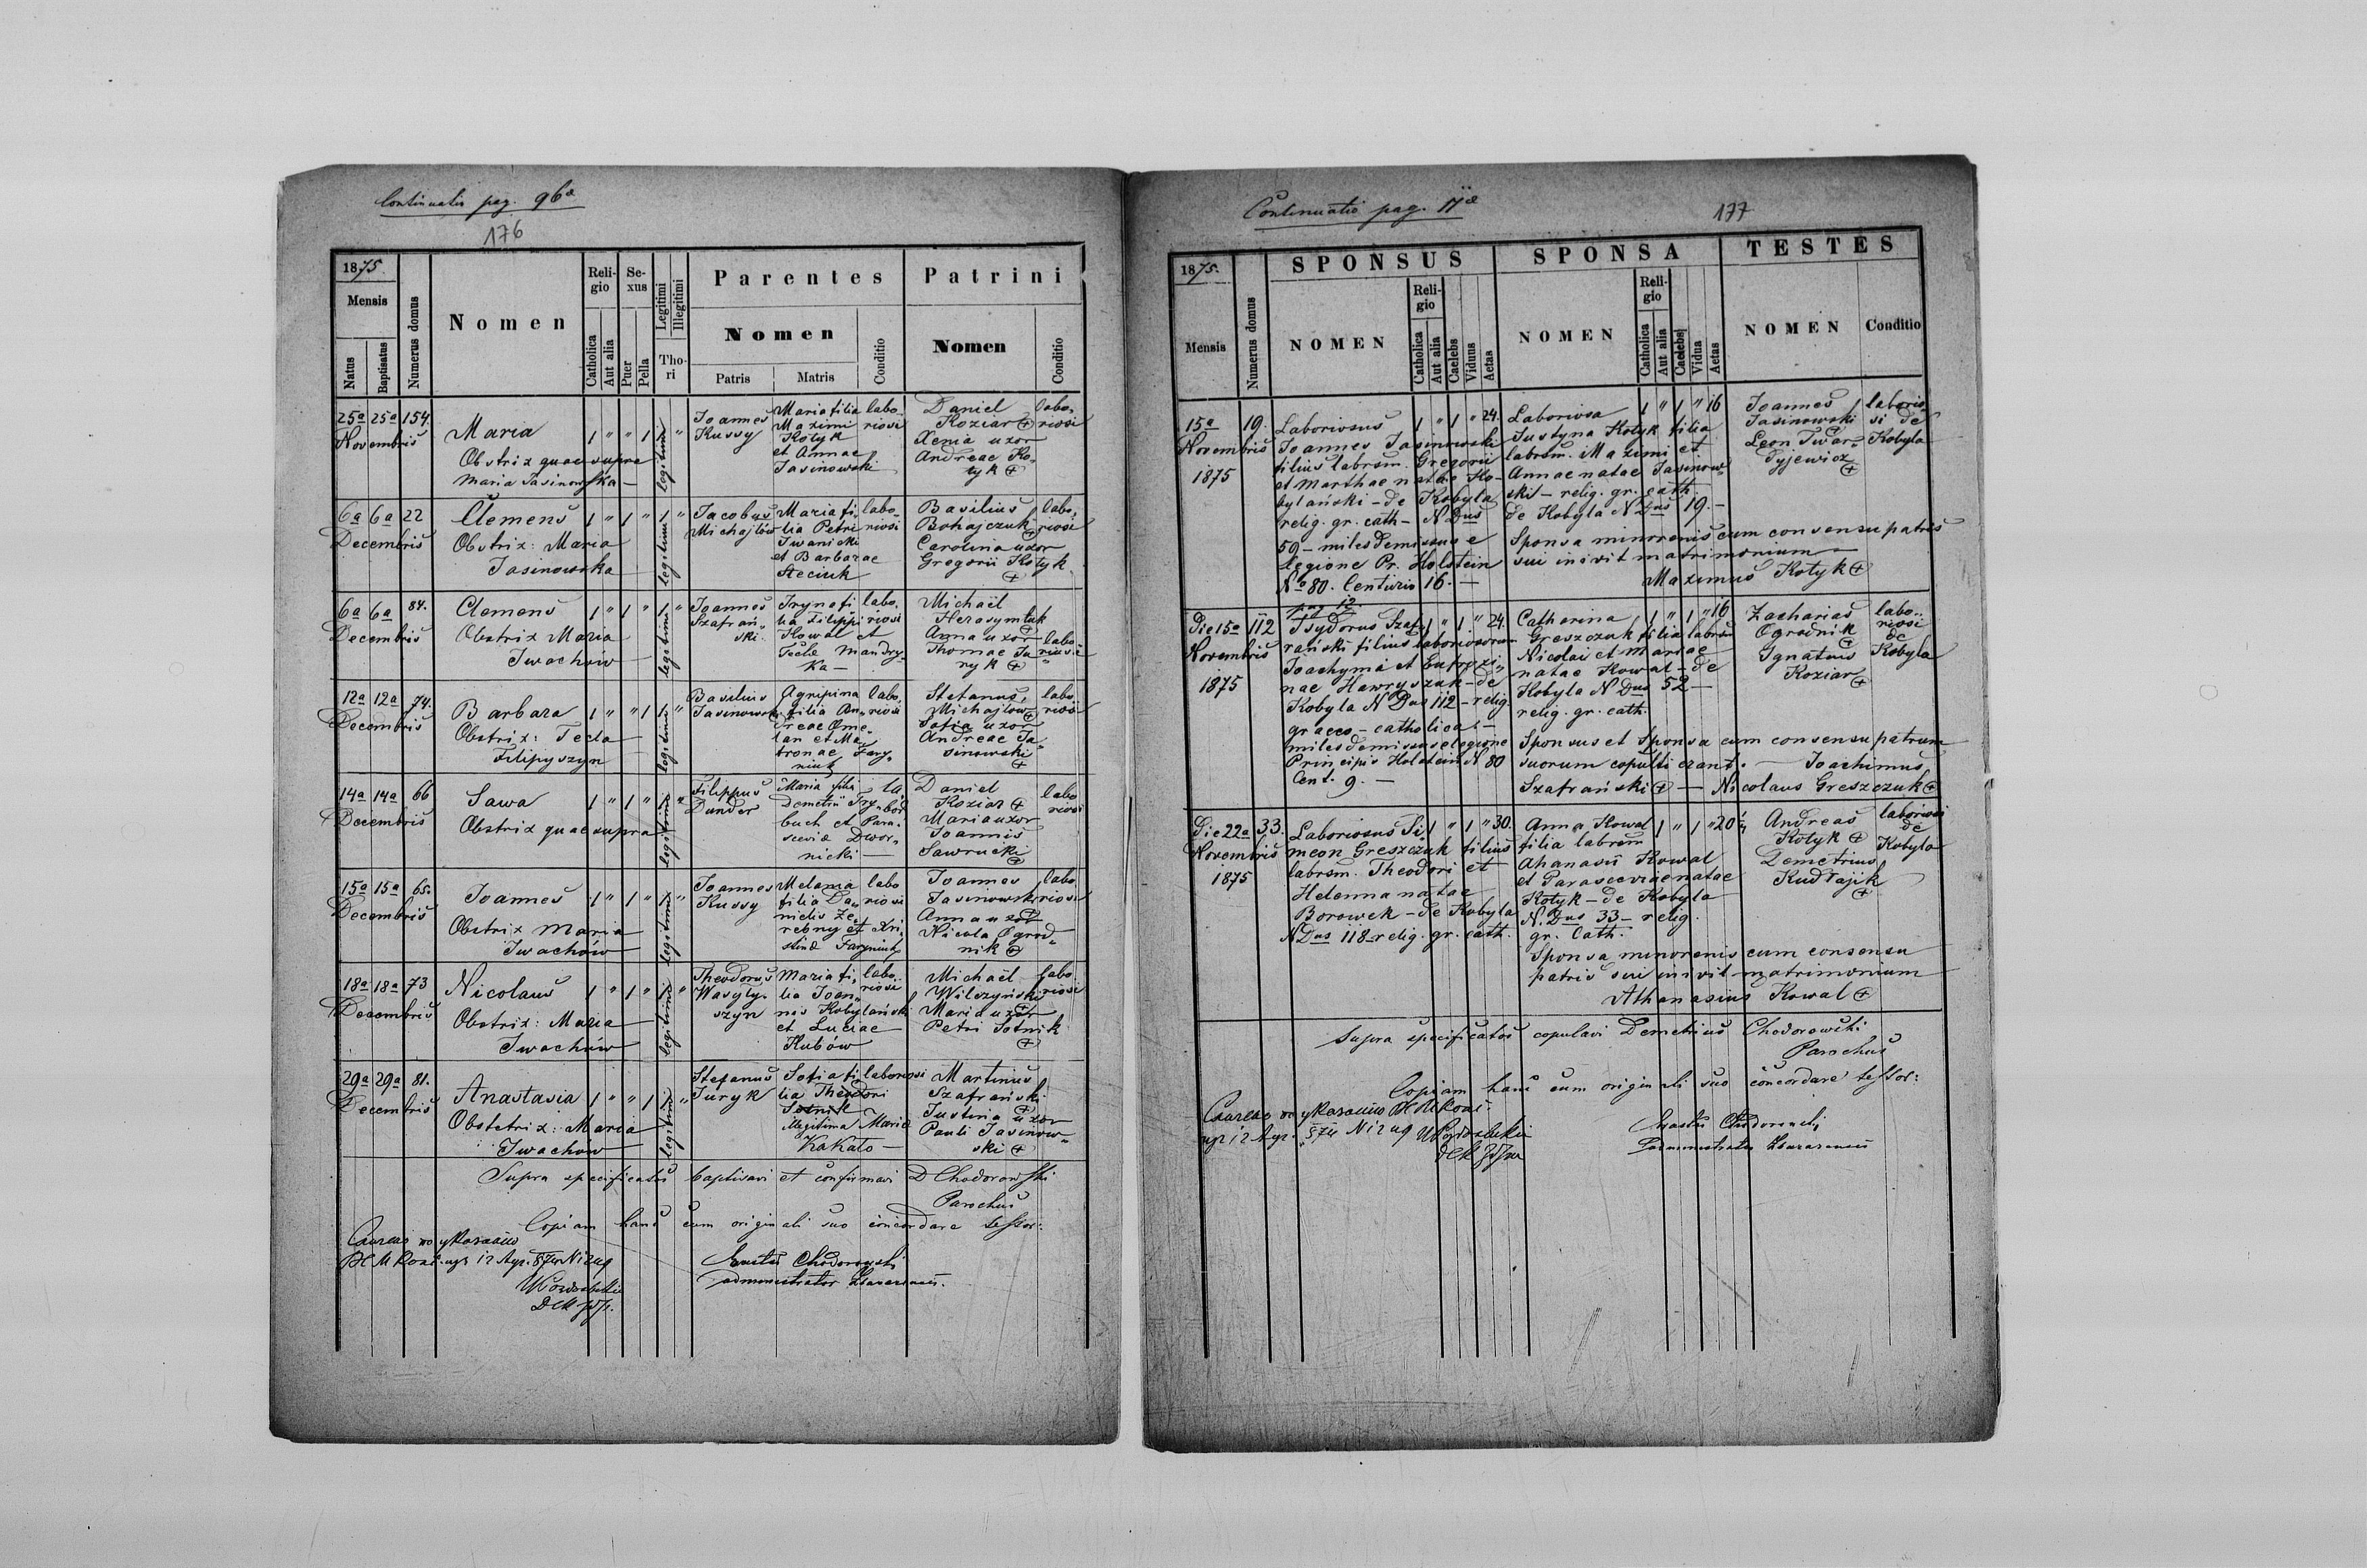 Continuatio pag. 96a
176
1875
Mensis
Natus
Baptisatus
Numerus domus
Nomen
Religio
Catholica
Aut alia
Sexus
Puer
Pella
Legitimi
Illegitimi
Thori
Parentes
Nomen
Patris
Matris
Conditio
Patrini
Nomen
Conditio
25a 25a 154.
Novembris
Maria
Obstrix quae supra
Maria Jasinowska —
1 " " 1
legitimi
Joannes
Kussy
Maria filia
Maximi
Kotyk
et Annae
Jasinowski
labo-
riosi
Daniel
Koziar
Xenia uxor
Andreae Ko-
tyk
labo-
riosi
6a 6a 22
Decembris
Clemens
Obstrix: Maria
Jasinowska
1 " 1 "
legitimi
Jacobus
Michajlów
Maria fi-
lia Petri
Iwanicki
et Barbarae
Steciuk
labo-
riosi
Basilius
Bohajczuk
Carolina uxor
Gregorii Kotyk
labo-
riosi
6a 6a 84.
Decembris
Clemens
Obstrix Maria
Iwachów
1 " 1 "
legitimi
Joannes
Szafrań-
ski.
Iryna fi
lia Filippi
Kowal et
Tecle Mandry-
ka —
labo-
riosi
Michaël
Herasymluk
Anna uxor
Thomae Ju
ryk
labo-
riosi
12a 12a 74.
Decembris
Barbara
Obstrix: Tecla
Filipyszyn
1 " " 1
legitimi
Basilius
Jasinowski
Agripina
filia An-
dreae Ome-
lan et Ma-
tronae Fary-
niuk
labo-
riosi
Stefanus
Michajlow
Sofia uxor
Andreae Ja
sinowski
labo-
riosi
14a 14a 66
Decembris
Sawa
Obstrix quae supra
1 " 1 "
legitimi
Filippus
Dunder
Maria filia
Demetrii Try-
buch et Para-
scevia Dwor-
nicki —
la-
bo
Daniel
Koziar
Maria uxor
Joannis
Sawrucki
labo
riosi
15a 15a 65.
Decembris
Joannes
Obstrix Maria
Iwachów
1 " 1 "
legitimi
Joannes
Kussy
Melania
filia Da-
nielis Ze-
rebny et Xri-
stina Faryniuk
labo
riosi
Joannes
Jasinowski
Anna uxor
Nicola Ogrod-
nik
labo
riosi
18a 18a 73
Decembris
Nicolaus
Obstrix: Maria
Iwachów
1 " 1 "
legitimi
Theodorus
Wasyly-
szyn
Maria fi-
lia Joan-
nis Kobylański
et Luciae
Kubów
labo-
riosi
Michaël
Wilczyński
Maria uxor
Petri Sotnik
labo
riosi
29a 29a 81.
Decembris
Anastasia
Obstetrix: Maria
Iwachów
1 " " 1
legitimi
Stefanus
Juryk
Sofia fi
lia Theodori
Sotnik
illegitima Maria
Kakato —
laboriosi
Martinus
Szafrański
Justina uxor
Pauli Jasinow-
ski
Supra specificatos baptisavi et confirmavi D Chodorowski
Parochus
Copiam hanc cum originali suo concordare testor:
Chodorowski
administrator
Continuatio pag. 11a
177
1875.
Mensis
Numerus domus
SPONSUS
NOMEN
Religio
Catholica
Aut alia
Caelebs
Viduus
Aetas
SPONSA
NOMEN
Religio
Catholica
Aut alia
Caelebs
Vidua
Aetas
TESTES
NOMEN
Conditio
15a
Novembris
1875
19.
Laboriosus
Joannes Jasinowski
filius labrsm. Gregorii
et Marthae natae Ko-
bylański — de Kobyla
relig. gr. cath — N Dus
59 — miles demissus e
legione Pr. Holstein
No 80. Centurio 16. —
1 " 1 " 24.
Laboriosa
Justyna Kotyk filia
labrsm. Maximi et
Annae natae Jasinow-
ski — relig. gr. cath.
de Kobyla N Dus 19. —
Sponsa minorenis cum consensu patris
sui inivit matrimonium —
Maximus Kotyk
1 " 1 " 16
Joannes
Jasinowski
Leon Twar-
Tyjewicz
laborio-
si de
Kobyla
pag 12
Die 15a
Novembris
1875
112
Isydorus Szaf-
rański filius laboriosorum
Joachymi et Eufrozi-
nae Hawryszuk — de
Kobyla N Dus 112 — relig.
graeco — catholica: —
miles demissus e legione
Principis Holstein N 80
Cent. 9. —
1 " 1 " 24.
Catharina
Greszczuk filia labrsm
Nicolai et Mariae
natae Kowal — de
Kobyla N Dus 52 —
relig. gr. cath.
Sponsus et Sponsa cum consensu patrum
suorum copulti erant. — Joachimus
Szafrański — Nicolaus Greszczuk
1 " 1 " 16
Zacharias
Ogrodnik
Ignatius
Koziar
labo-
riosi
de
Kobyla
Die 22a
Novembris
1875
33.
Laboriosus Si-
meon Greszczuk filius
labrsm. Theodori et
Helenna natae
Borowek — de Kobyla
N Dus 118 — relig. gr. cath.
1 " 1 " 30.
Anna Kowal
filia labrsm
Ahanasii Kowal
et Parasceviae natae
Kotyk — de Kobyla
N. Dus 33 — relig.
gr. Cath.
Sponsa minorenis cum consensu
patris sui inivit matrimonium
Athanasius Kowal
1 " 1 " 20
Andreas
Kotyk
Demetrius
Kudłajik
laboriosi
de
Kobyla
Supra specificatos copulavi Demetrius Chodorowski
Parochus
Copiam hanc cum originali suo concordare testor:
Chodorowski
administrator